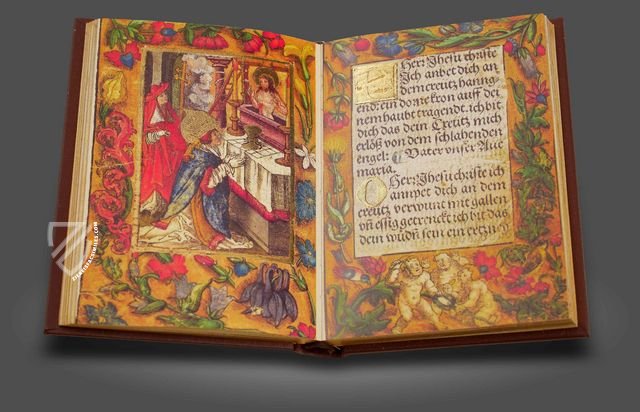 O Herr Jhesu christe
Ich anbet dich an
dem creutz hanng
end: ein dorne kron auff dei
nem haubt tragendt. ich bit
dich das dein Creütz mich
erlöß von dem schlahenden
engel: Vater vnser Aue
maria.
O Herr Jhesu christe ich
anpet dich an dem
creutz verwunt mit gallen
vn̄ essig getrenckt ich bit das
dein wūdn̄ sein ein ertzney
ZIEREISFACSIMILES.COM